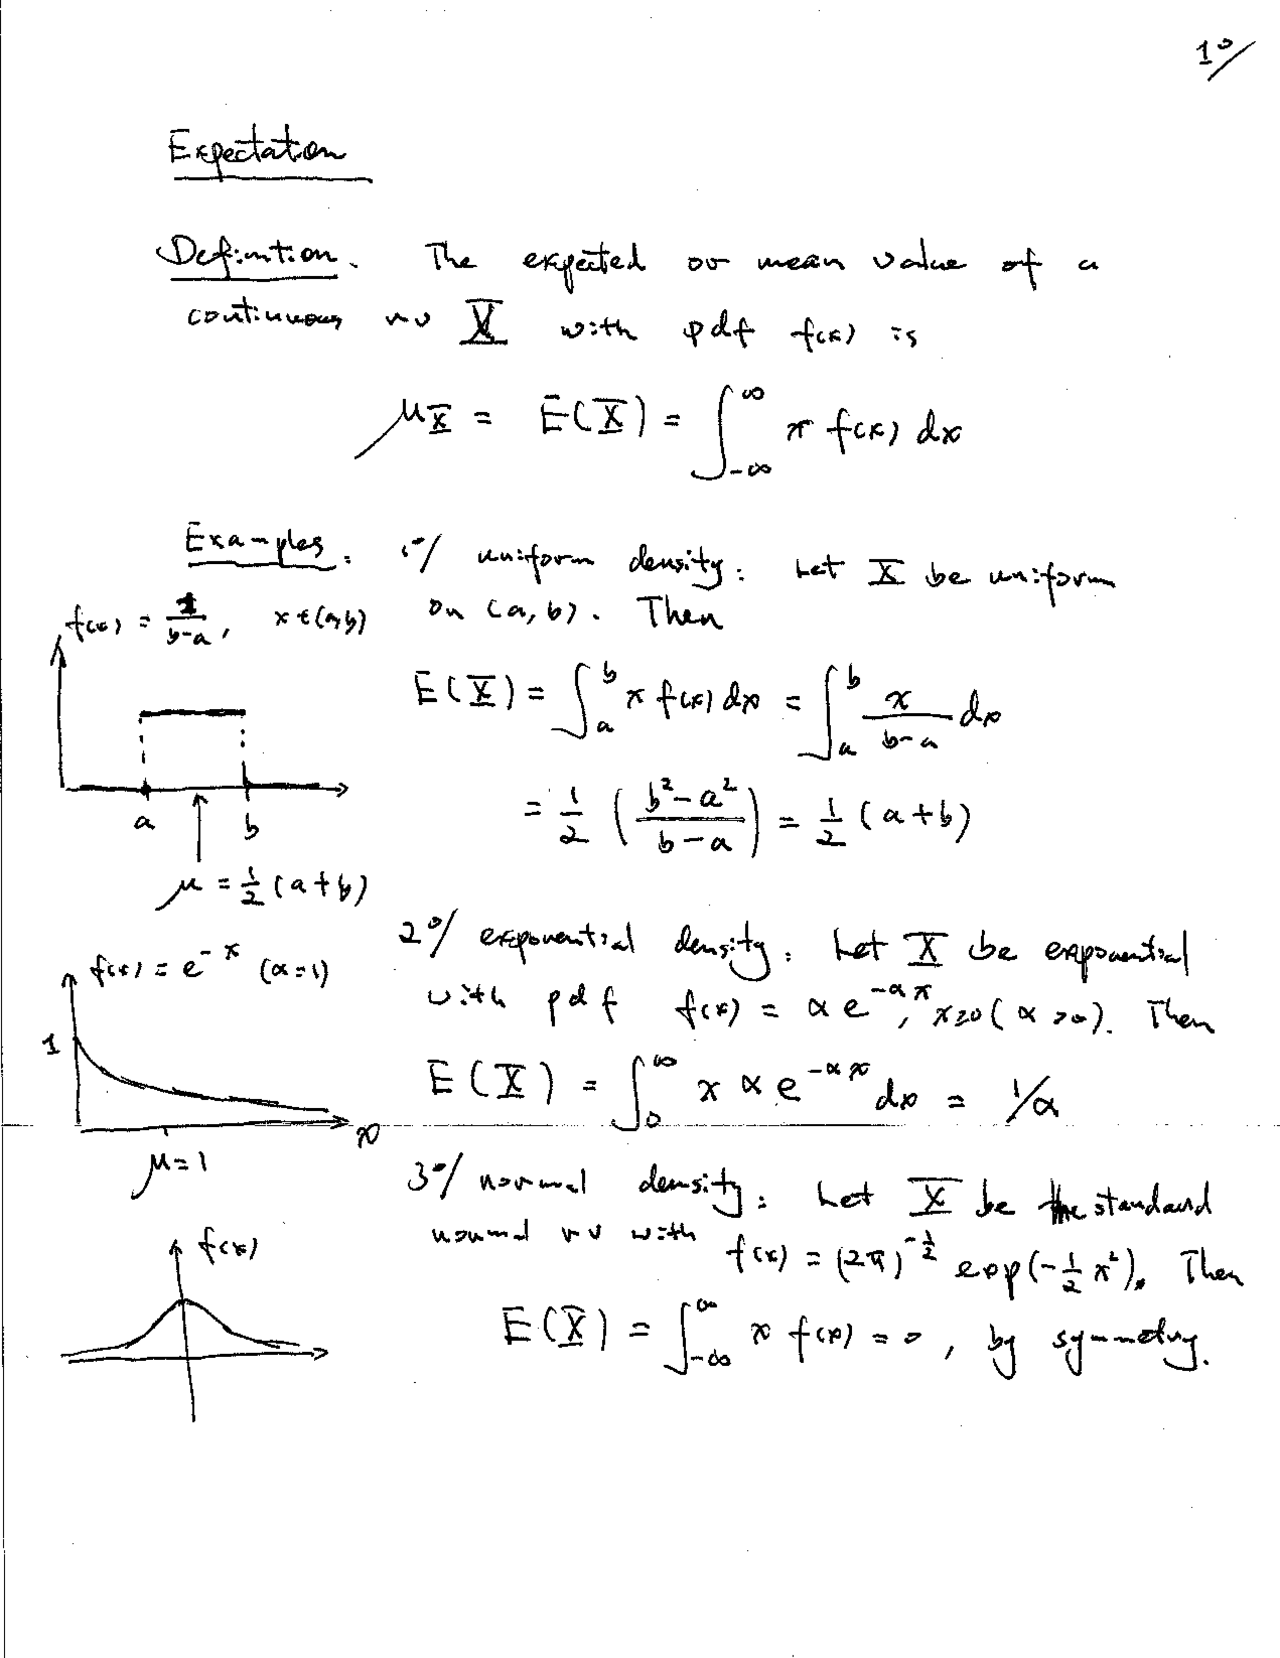 1º/
Expectation
Definition. The expected or mean value of a
continuous rv X with pdf f(x) is
μ_X = E(X) = ∫_{-∞}^{∞} x f(x) dx
Examples. 1º/ uniform density: Let X be uniform
on (a, b). Then
f(x) = 1/(b-a), x ∈ (a,b)
E(X) = ∫_a^b x f(x) dx = ∫_a^b x/(b-a) dx
= 1/2 ((b²-a²)/(b-a)) = 1/2 (a+b)
a b
μ = 1/2 (a+b)
2º/ exponential density: Let X be exponential
with pdf f(x) = α e^{-αx}, x≥0 (α>0). Then
f(x) = e^{-x} (α=1)
1
E(X) = ∫_0^∞ x α e^{-αx} dx = 1/α
x
μ=1
3º/ normal density: Let X be the standard
normal rv with f(x) = (2π)^{-1/2} exp(-1/2 x²). Then
f(x)
E(X) = ∫_{-∞}^{∞} x f(x) = 0, by symmetry.